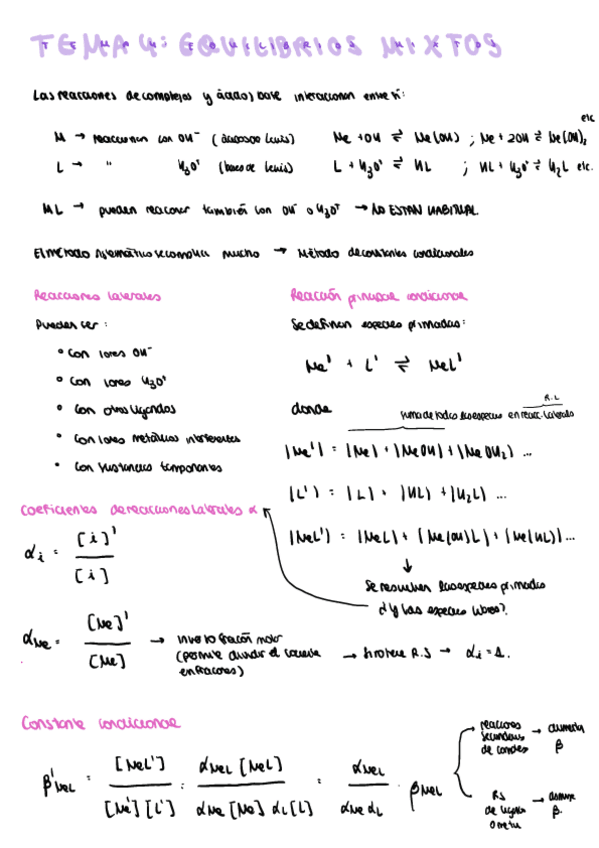 TEMA 4: EQUILIBRIOS MIXTOS
Las reacciones de complejos y ácido/base interaccionan entre sí:
M → reaccionan con OH⁻ (ácidos de Lewis) Me + OH ⇌ Me(OH) ; Me + 2OH ⇌ Me(OH)₂ etc
L → " H₃O⁺ (bases de Lewis) L + H₃O⁺ ⇌ HL ; HL + H₃O⁺ ⇌ H₂L etc.
ML → pueden reaccionar también con OH⁻ o H₃O⁺ → NO ES TAN HABITUAL.
El método sistemático se complica mucho → Método de constantes condicionales
Reacciones laterales
Pueden ser:
• Con iones OH⁻
• Con iones H₃O⁺
• Con otros ligandos
• Con iones metálicos interferentes
• Con sustancias tamponantes
Reacción principal condicional
Se definen especies primadas:
Me' + L' ⇌ MeL'
donde suma de todas las especies en reacc. laterales
R.L
|Me'| = |Me| + |MeOH| + |MeOH₂| ...
|L'| = |L| + |HL| + |H₂L| ...
|MeL'| = |MeL| + |Me(OH)L| + |Me(HL)| ...
↓
Se resuelven las especies primadas
¿Y las especies libres?
Coeficientes de reacciones laterales α
αᵢ = [i]' / [i]
α_Me = [Me]' / [Me] → inverso fracción molar
(permite dividir el
en fracciones) → Si no hay R.S → αᵢ = 1.
Constante condicional
β'_MeL = [MeL'] / [Me'][L'] = α_MeL [MeL] / α_Me [Me] α_L [L] = α_MeL / α_Me α_L · β_MeL
reacciones
secundarias
de complejo → aumenta β
RS
de ligando
o metal → disminuye β.